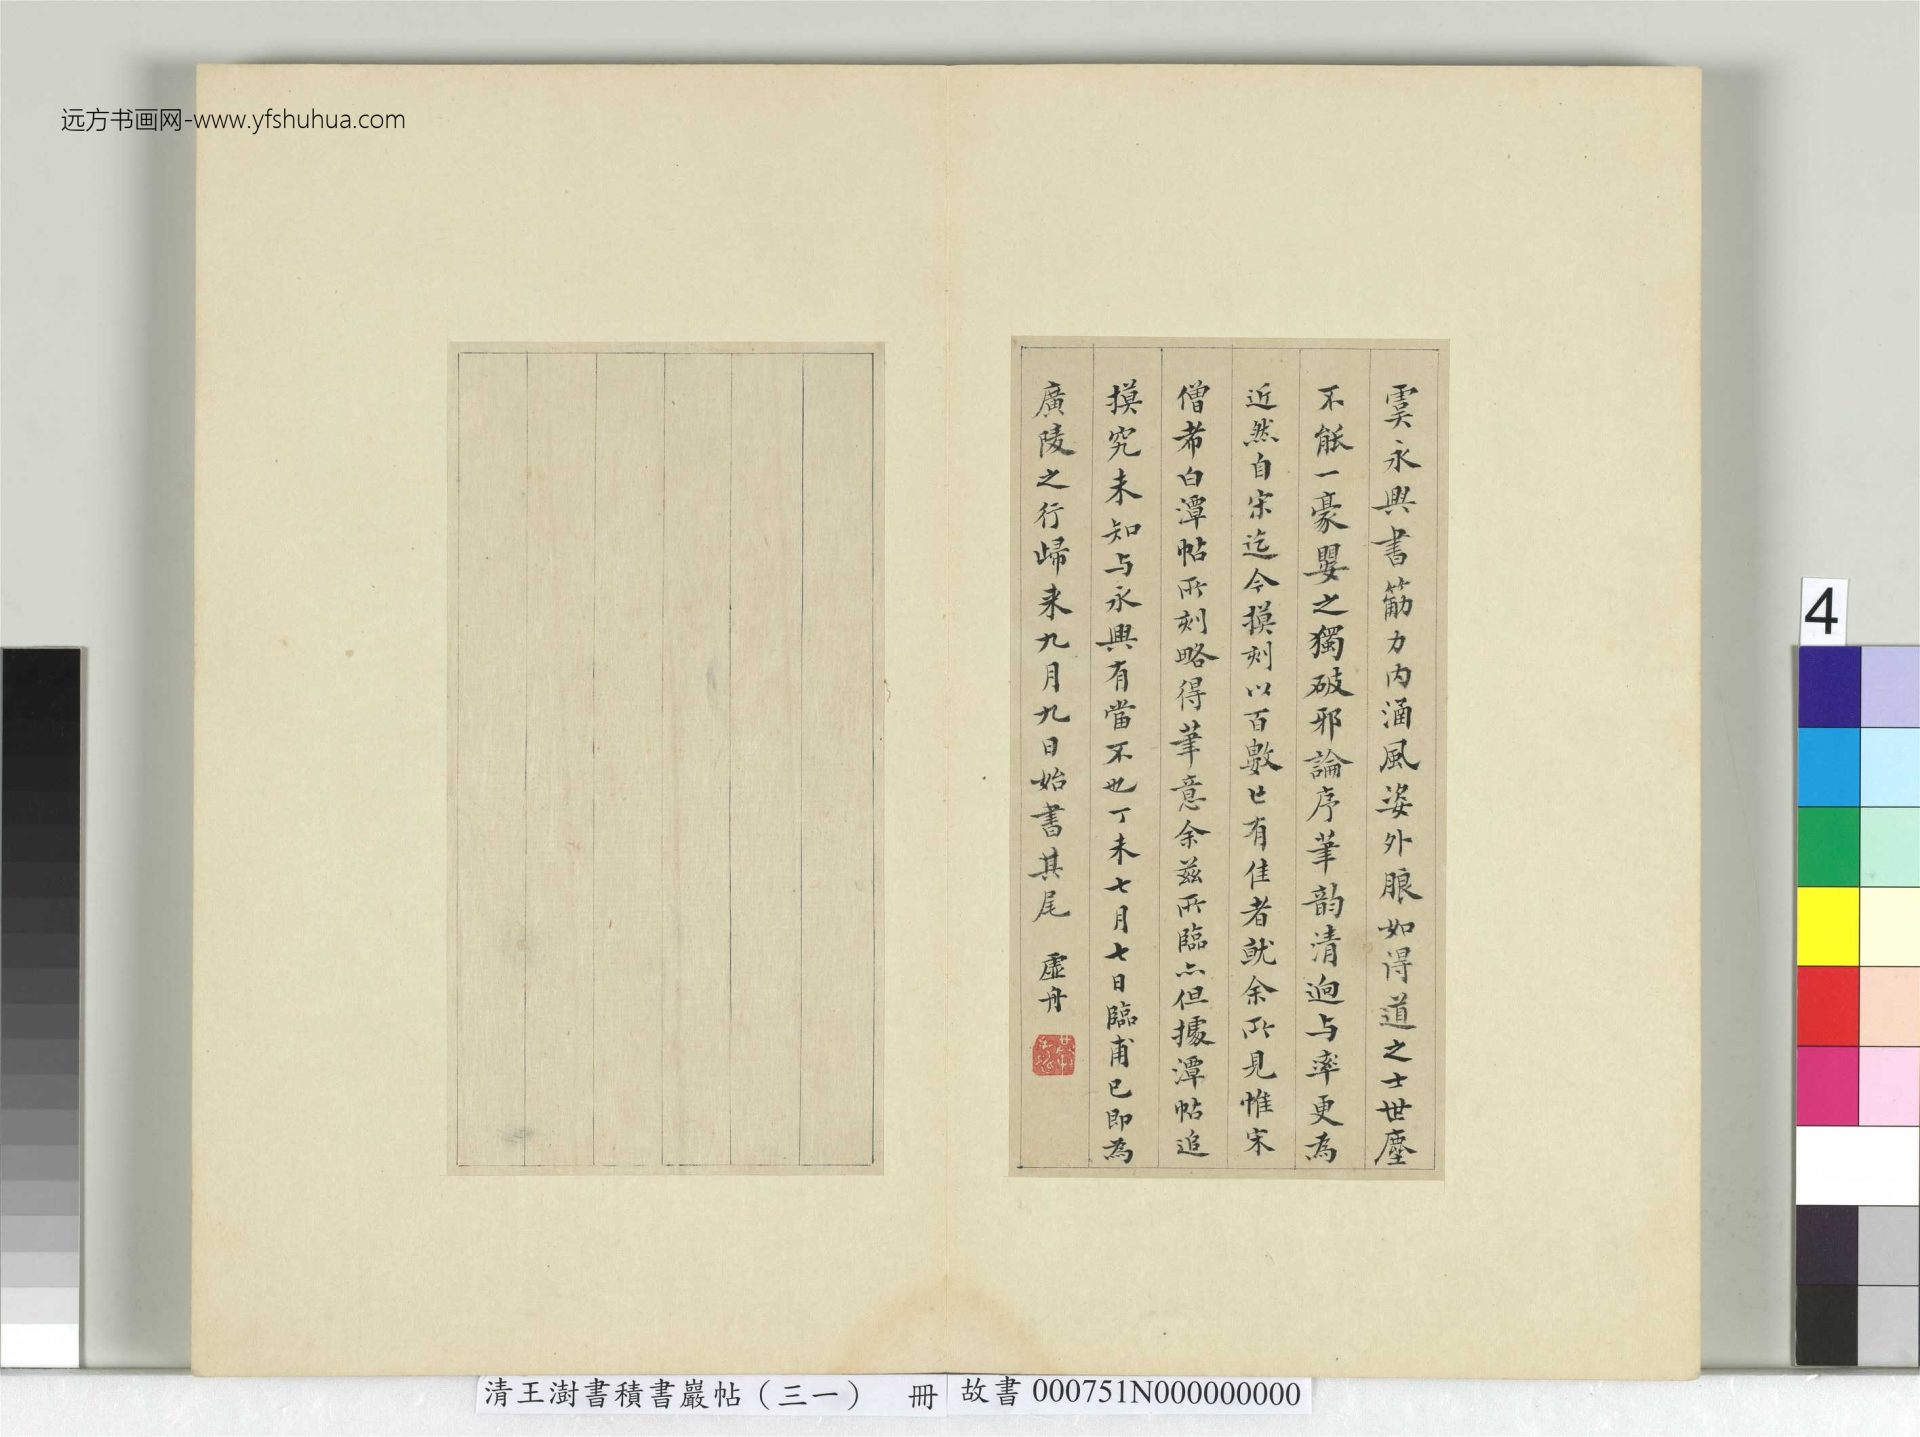 远方书画网-www.yfshuhua.com
虞永興書筋力内涵風姿外朗如得道之士世塵
不能一豪嬰之獨破邪論序筆韵清迥与率更為
近然自宋迄今摸刻以百數尠有佳者就余所見惟宋
僧希白潭帖所刻略得筆意余兹所臨亦但據潭帖追
摸究未知与永興有當不也丁未七月七日臨甫已即為
廣陵之行歸来九月九日始書其尾 虛舟
4
清王澍書積書巖帖（三一） 冊 故書 000751N000000000